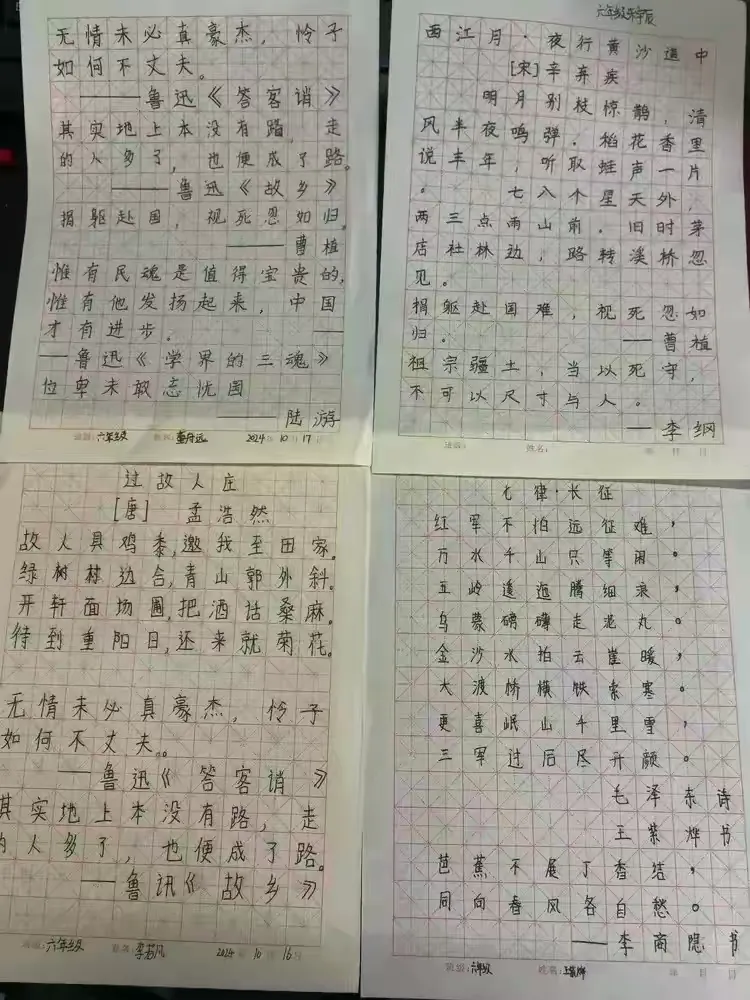 无情未必真豪杰，怜子
如何不丈夫。
——鲁迅《答客诮》
其实地上本没有路，走
的人多了，也便成了路。
——鲁迅《故乡》
捐躯赴国，视死忽如归。
——曹植
惟有民魂是值得宝贵的，
惟有他发扬起来，中国
才有进步。——
—鲁迅《学界的三魂》
位卑未敢忘忧国
——陆游
班级：六年级 2024年10月17日
六年级
西江月·夜行黄沙道中
[宋]辛弃疾
明月别枝惊鹊，清
风半夜鸣蝉．稻花香里
说丰年，听取蛙声一片
。七八个星天外，
两三点雨山前．旧时茅
店社林边，路转溪桥忽
见。
捐躯赴国难，视死忽如
归。——曹植
祖宗疆土，当以死守，
不可以尺寸与人。
——李纲
班级： 姓名： 年 月 日
过故人庄
[唐] 孟浩然
故人具鸡黍,邀我至田家。
绿树村边合,青山郭外斜。
开轩面场圃,把酒话桑麻。
待到重阳日,还来就菊花。
无情未必真豪杰，怜子
如何不丈夫。
——鲁迅《答客诮》
其实地上本没有路，走
的人多了，也便成了路。
——鲁讯《故乡》
班级：六年级 2024年10月16日
七律·长征
红军不怕远征难，
万水千山只等闲。
五岭逶迤腾细浪，
乌蒙磅礴走泥丸。
金沙水拍云崖暖，
大渡桥横铁索寒。
更喜岷山千里雪，
三军过后尽开颜。
毛泽东诗
王紫烨书
芭蕉不展丁香结，
同向春风各自愁。
——李商隐书
班级：六年级 姓名： 年 月 日